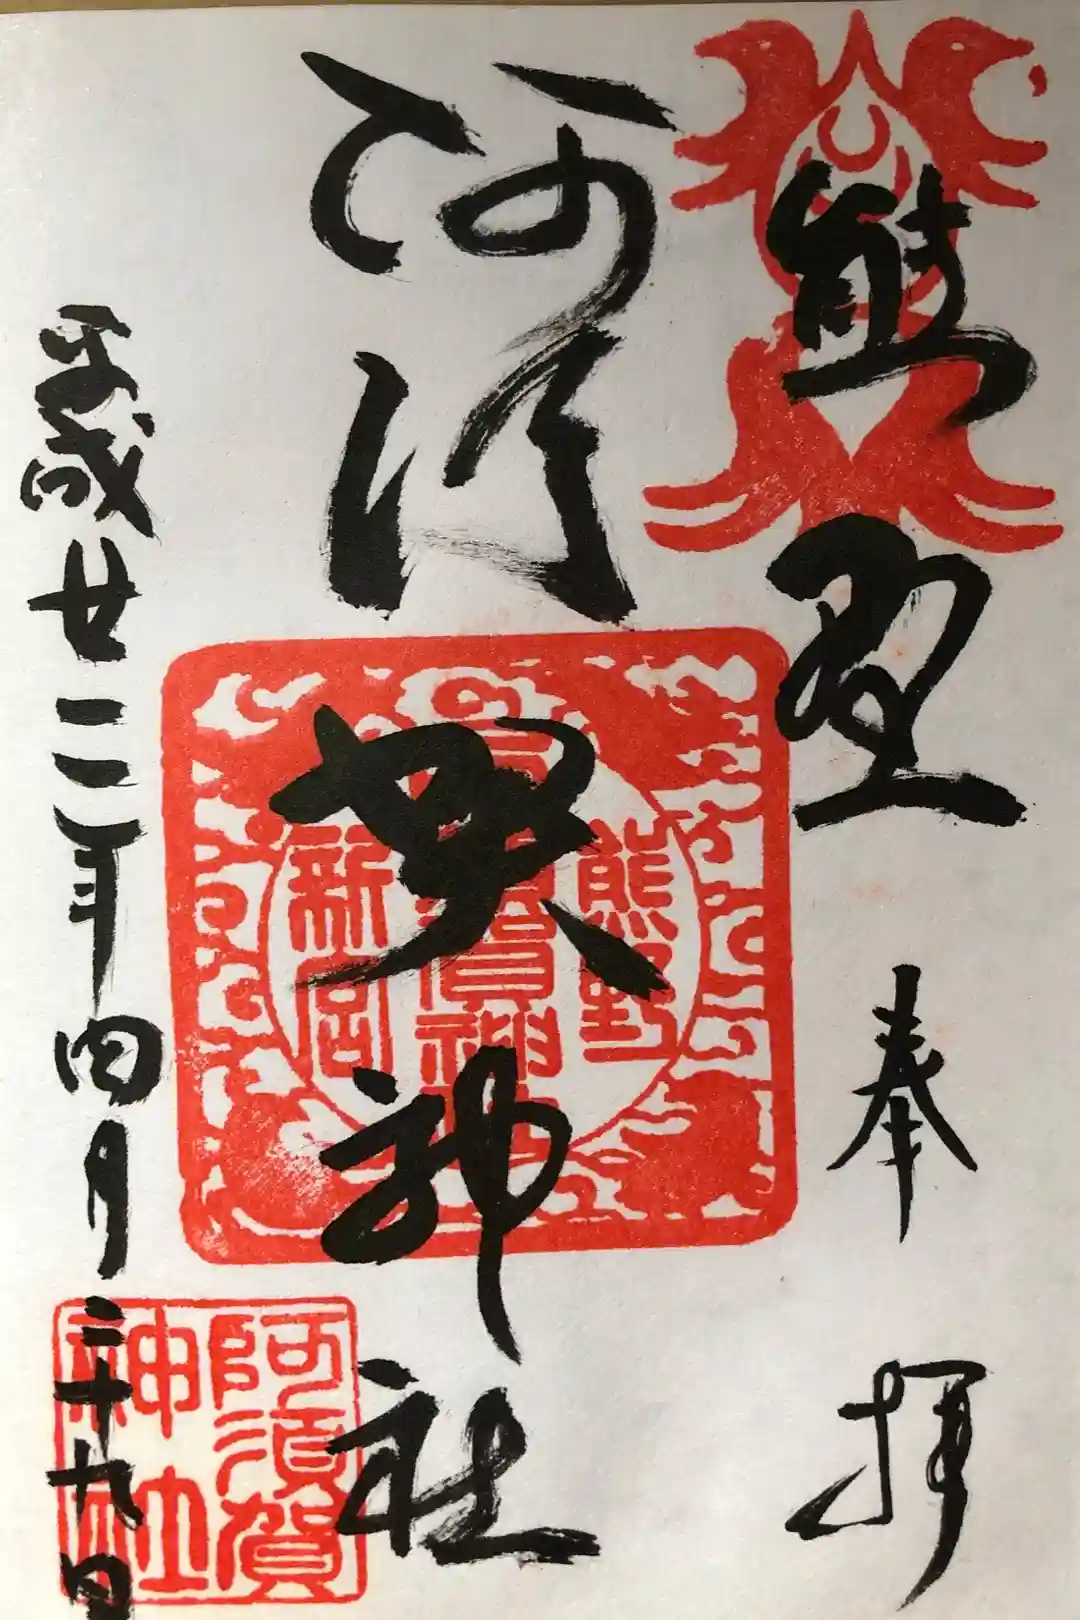 熊野
奉拝
阿須賀神社
平成廿二年四月二十九日
熊野
阿須賀神社
新宮
阿須賀
神社